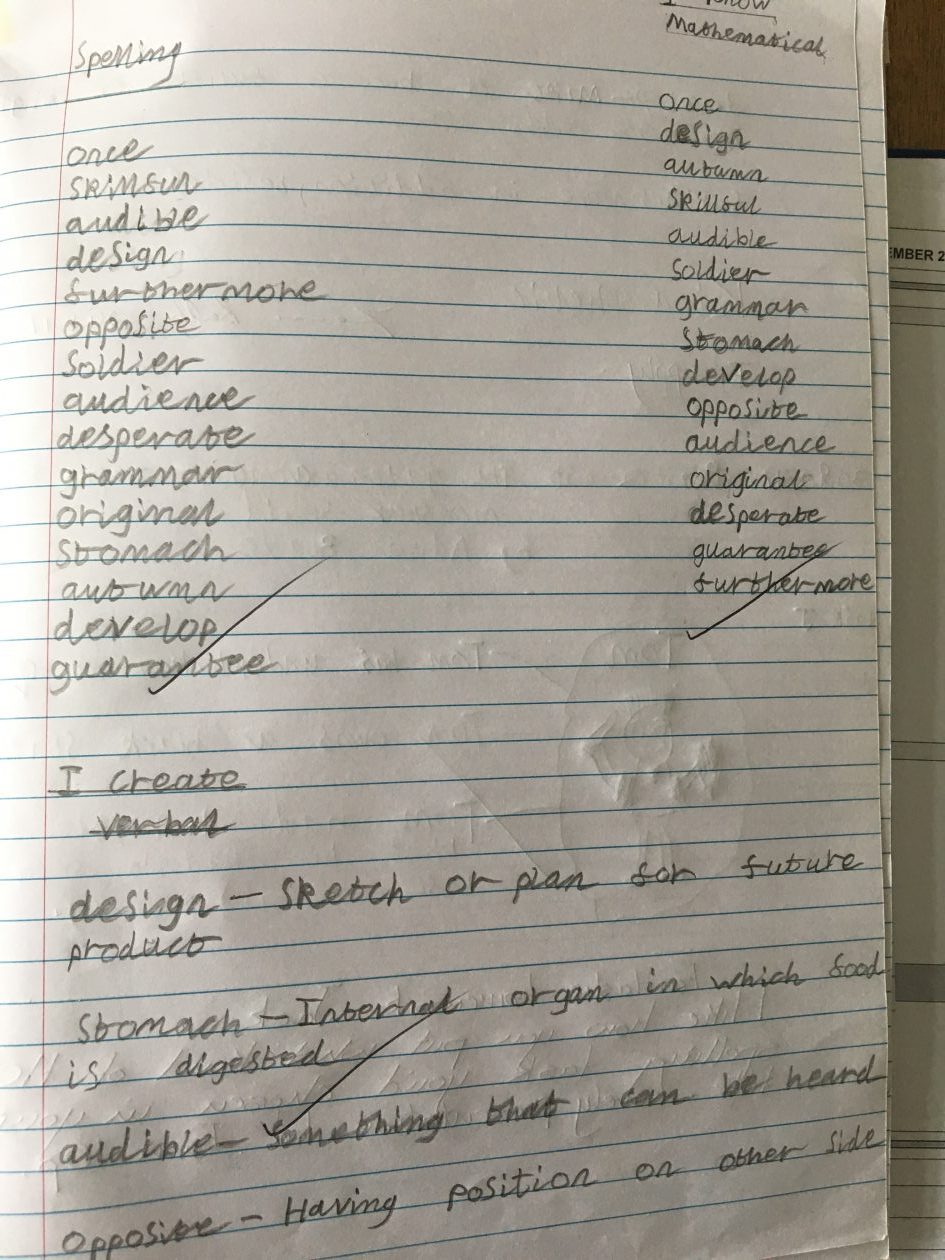 Spelling
once
skillful
audible
design
furthermore
opposite
soldier
audience
desperate
grammar
original
stomach
autumn
develop
guarantee
I know
Mathematical
once
design
autumn
skillful
audible
soldier
grammar
stomach
develop
opposite
audience
original
desperate
guarantee
furthermore
I create
verbal
design – sketch or plan for future
product
Stomach – Internal organ in which food
is digested
audible – Something that can be heard
Opposite – Having position on other side
EMBER 2